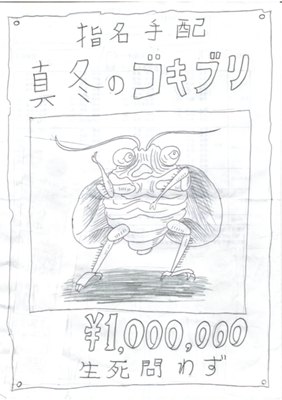 指名手配
真冬のゴキブリ
¥1,000,000
生死問わず